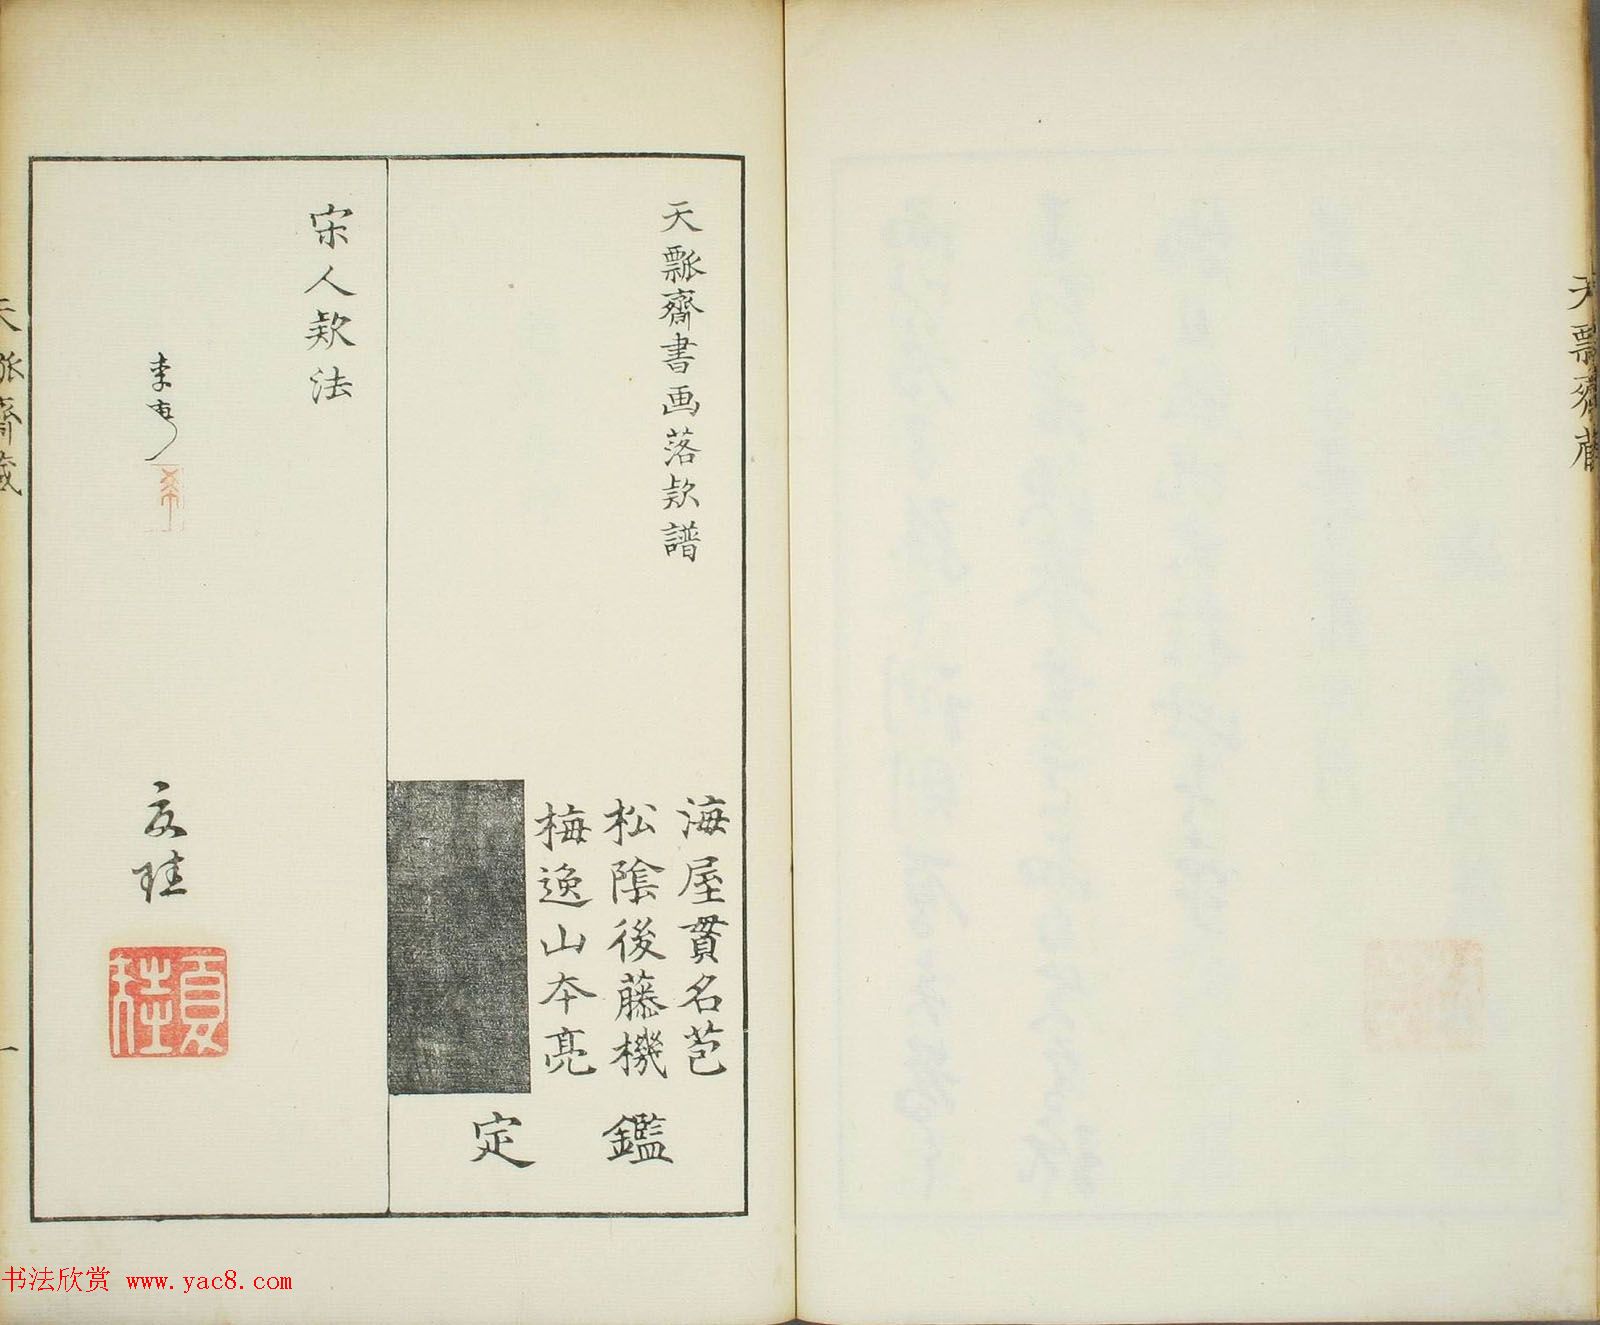 天瓢齋書画落欵譜
海屋貫名苞
松陰後藤機
梅逸山本亮
鑑定
宋人欵法
夏珪
夏珪
天瓢齋藏
一
天瓢齋藏
书法欣赏 www.yac8.com